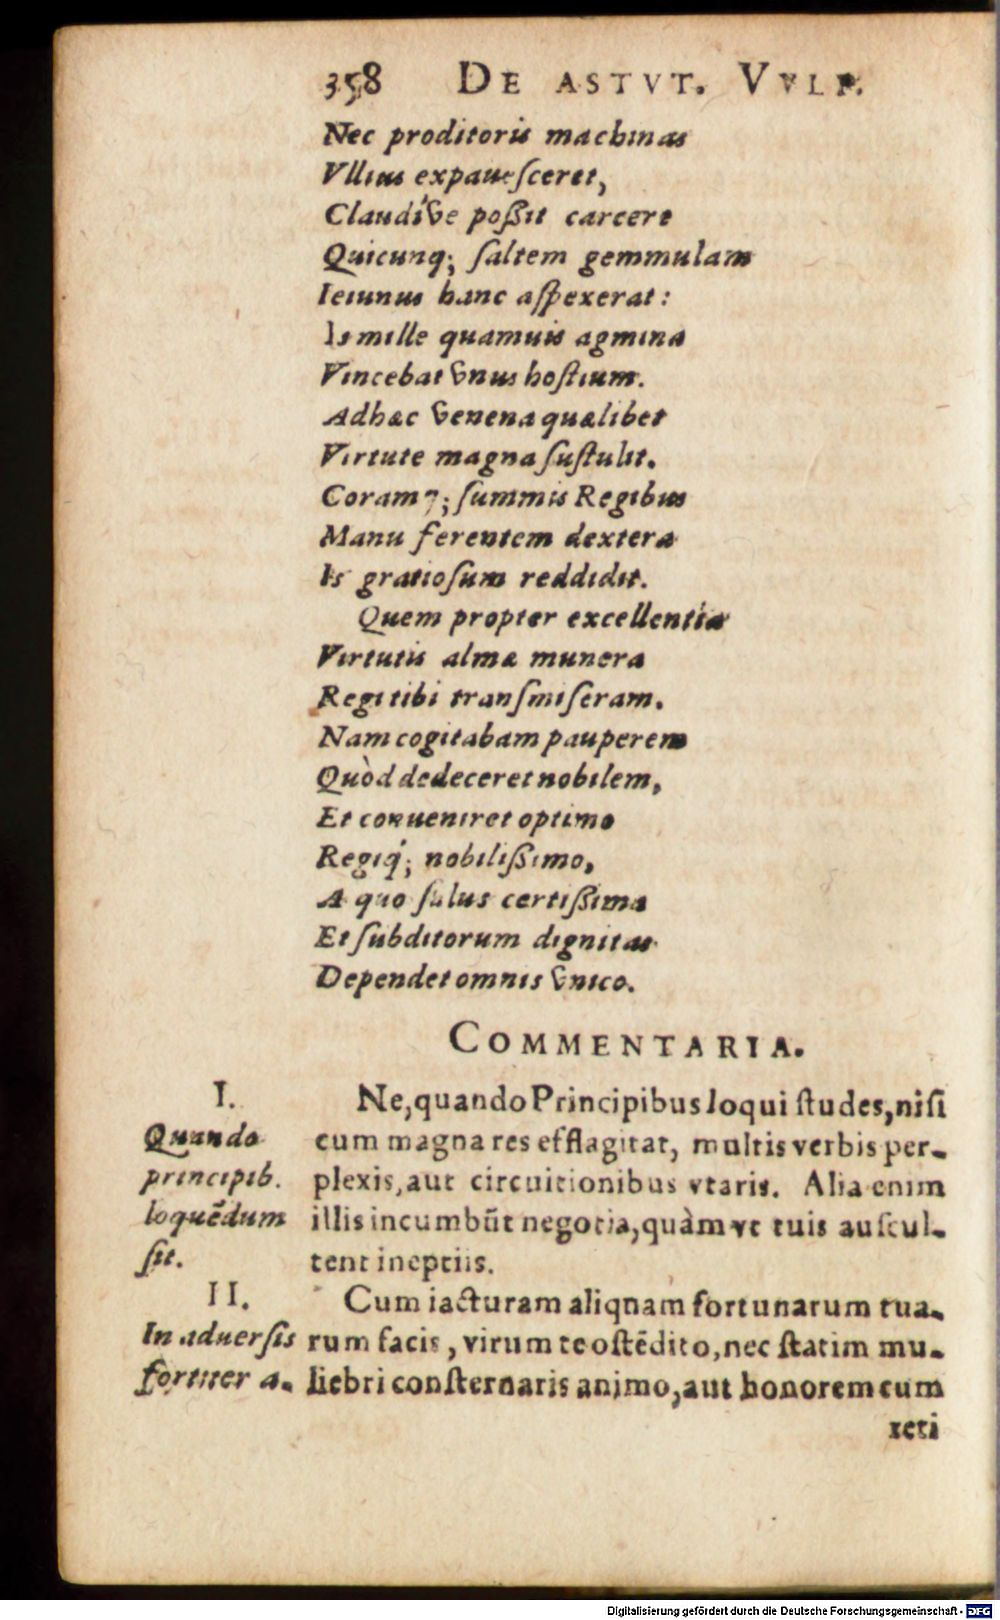 358 DE ASTVT. VVLP.
Nec proditoris machinas
Vllius expauesceret,
Claudíve poßit carcere
Quicunq; saltem gemmulam
Ieiunus hanc aspexerat:
Is mille quamuis agmina
Vincebat vnus hostium.
Adhæc venena quælibet
Virtute magna sustulit.
Coramq; summis Regibus
Manu ferentem dextera
Is gratiosum reddidit.
Quem propter excellentia
Virtutis almæ munera
Regi tibi transmiseram.
Nam cogitabam pauperem
Quòd dedeceret nobilem,
Et conueniret optimo
Regiq́; nobilißimo,
A quo salus certißima
Et subditorum dignitas
Dependet omnis vnico.
COMMENTARIA.
I.
Quando
principib.
loquēdum
sit.
Ne, quando Principibus loqui studes, nisi
cum magna res efflagitat, multis verbis per-
plexis, aut circuitionibus vtaris. Alia enim
illis incumbūt negotia, quàm vt tuis auscul-
tent ineptiis.
II.
In aduersis
fortiter a.
Cum iacturam aliqnam fortunarum tua-
rum facis, virum te ostēdito, nec statim mu-
liebri consternaris animo, aut honorem cum
reti
Digitalisierung gefördert durch die Deutsche Forschungsgemeinschaft - DFG